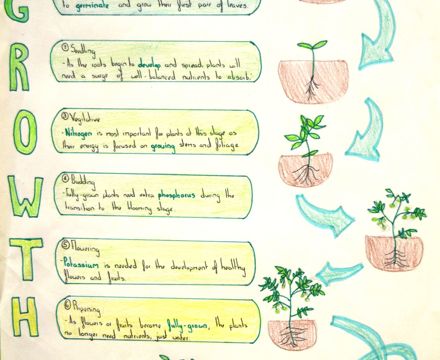 G
to germinate and grow their first pair of leaves.
R
② Seedling
- As the roots begin to develop and spread, plants will
need a surge of well-balanced nutrients to absorb.
O
③ Vegitative
- Nitrogen is most important for plants at this stage as
their energy is focused on growing stems and foliage
W
④ Budding
- Fully-grown plants need extra phosphorus during the
transition to the blooming stage
T
⑤ Flowering
- Potassium is needed for the development of healthy
flowers and fruits.
H
⑥ Ripening
- As flowers or fruits become fully-grown, the plants
no longer need nutrients, just water